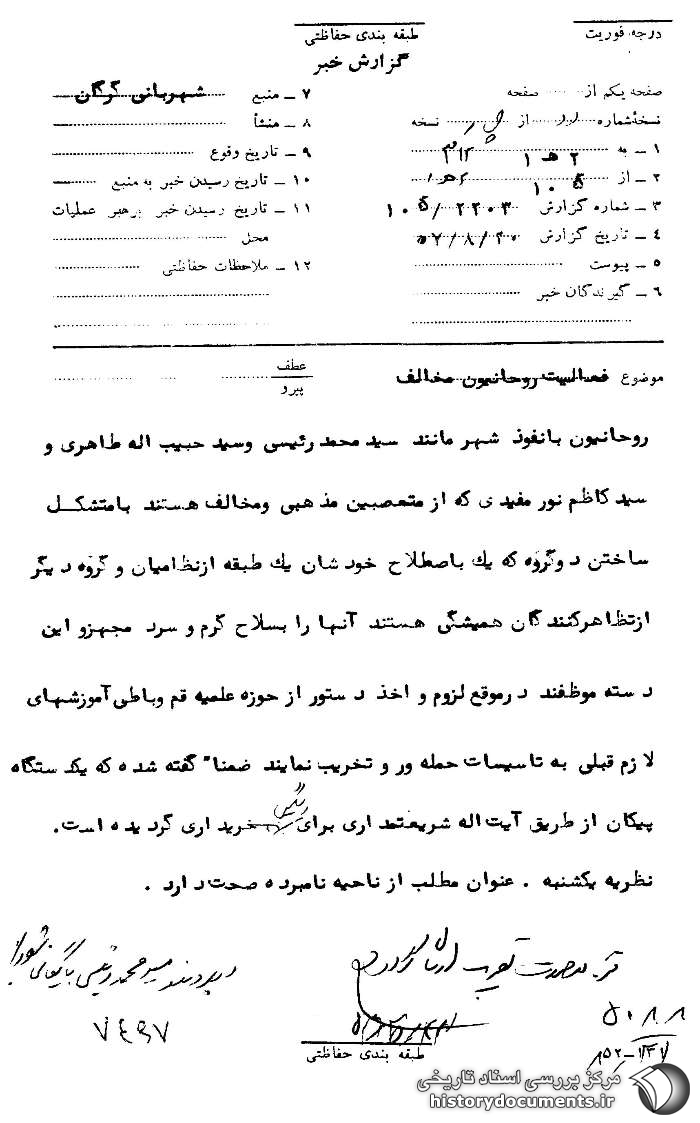 درجه فوریت
طبقه بندی حفاظتی
گزارش خبر
صفحه یکم از ...... صفحه
نسخهٔ شماره ........ از ........ نسخه
۱ ـ به ۲ هـ ۱
۲ ـ از ۱۰ ۵
۳ ـ شماره گزارش ۱۰ ۵/۲۲۰۳
۴ ـ تاریخ گزارش ۵۷/۸/۲۰
۵ ـ پیوست
۶ ـ گیرندگان خبر
۷ ـ منبع شهربانی گرگان
۸ ـ منشأ
۹ ـ تاریخ وقوع
۱۰ ـ تاریخ رسیدن خبر به منبع
۱۱ ـ تاریخ رسیدن خبر برهبر عملیات
محل
۱۲ ـ ملاحظات حفاظتی
موضوع فعالیت روحانیون مخالف
عطف
پیرو
روحانیون بانفوذ شهر مانند سید محمد رئیسی وسید حبیب اله طاهری و
سید کاظم نور مفیدی که از متعصبین مذهبی ومخالف هستند بامتشکل
ساختن دوگروه که یك باصطلاح خودشان یك طبقه ازنظامیان و گروه دیگر
ازتظاهرکنندگان همیشگی هستند آنها را بسلاح گرم و سرد مجهزو این
دسته موظفند درموقع لزوم و اخذ دستور از حوزه علمیه قم وباطی آموزشهای
لازم قبلی به تاسیسات حمله ور و تخریب نمایند ضمنا" گفته شده که یکدستگاه
پیکان از طریق آیت اله شریعتمداری برای رئیسی خریداری گردیده است.
نظریه یکشنبه . عنوان مطلب از ناحیه نامبرده صحت دارد .
در پرونده سید محمد رئیسی بایگانی شود
۷۴۹۷
۵۰۸۸
طبقه بندی حفاظتی
مرکز بررسی اسناد تاریخی
historydocuments.ir